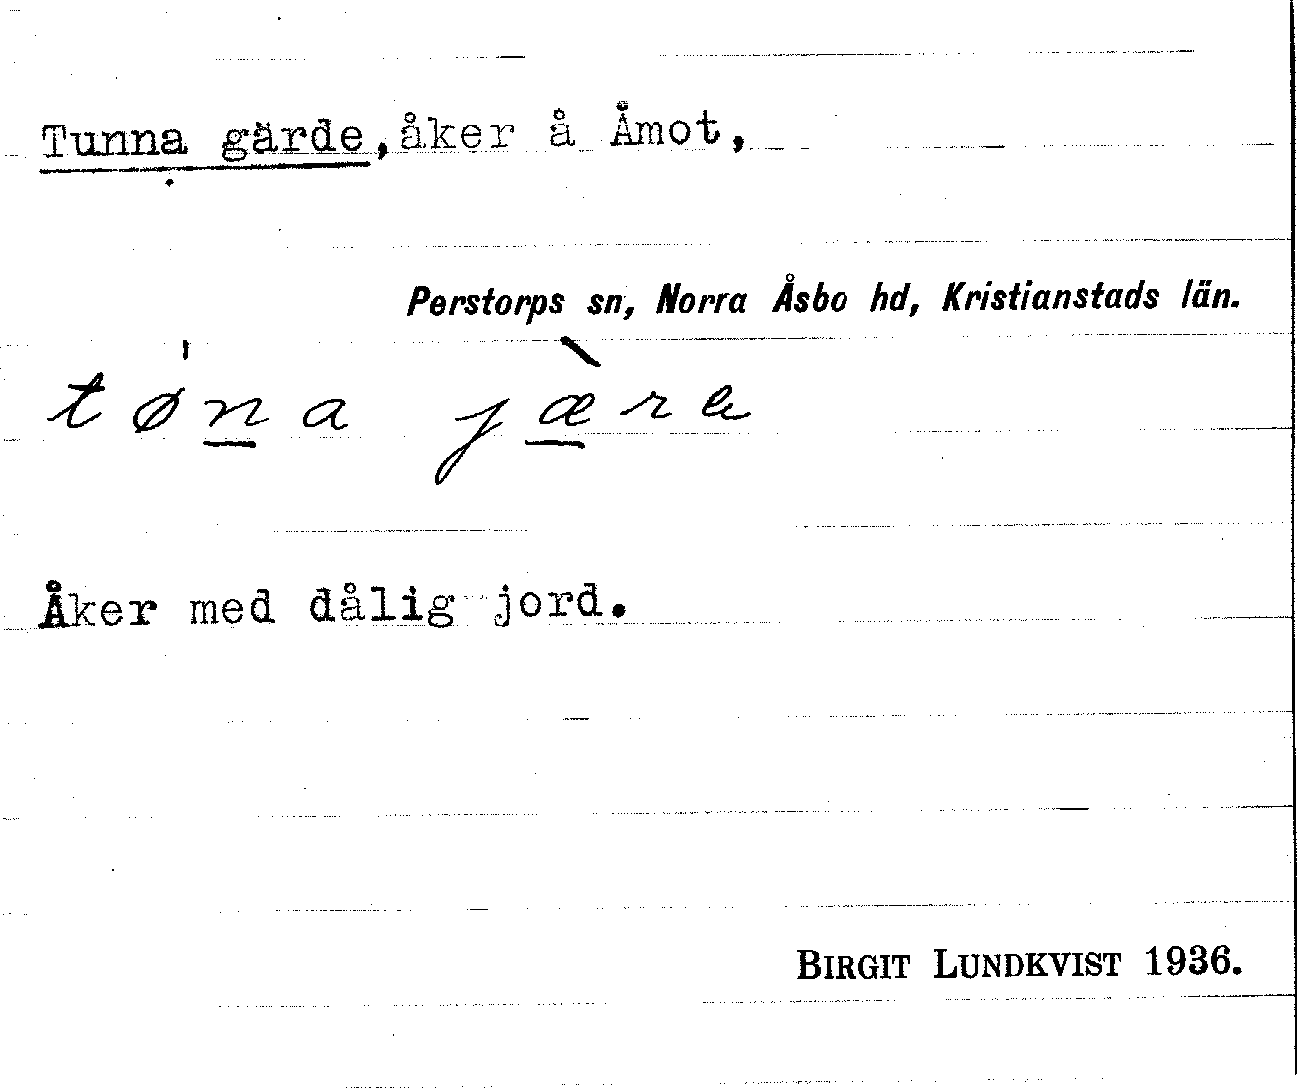 Tunna gärde, åker å Åmot,
Perstorps sn, Norra Åsbo hd, Kristianstads län.
tø'n̲a jæ̲̀re
Åker med dålig jord.
BIRGIT LUNDKVIST 1936.